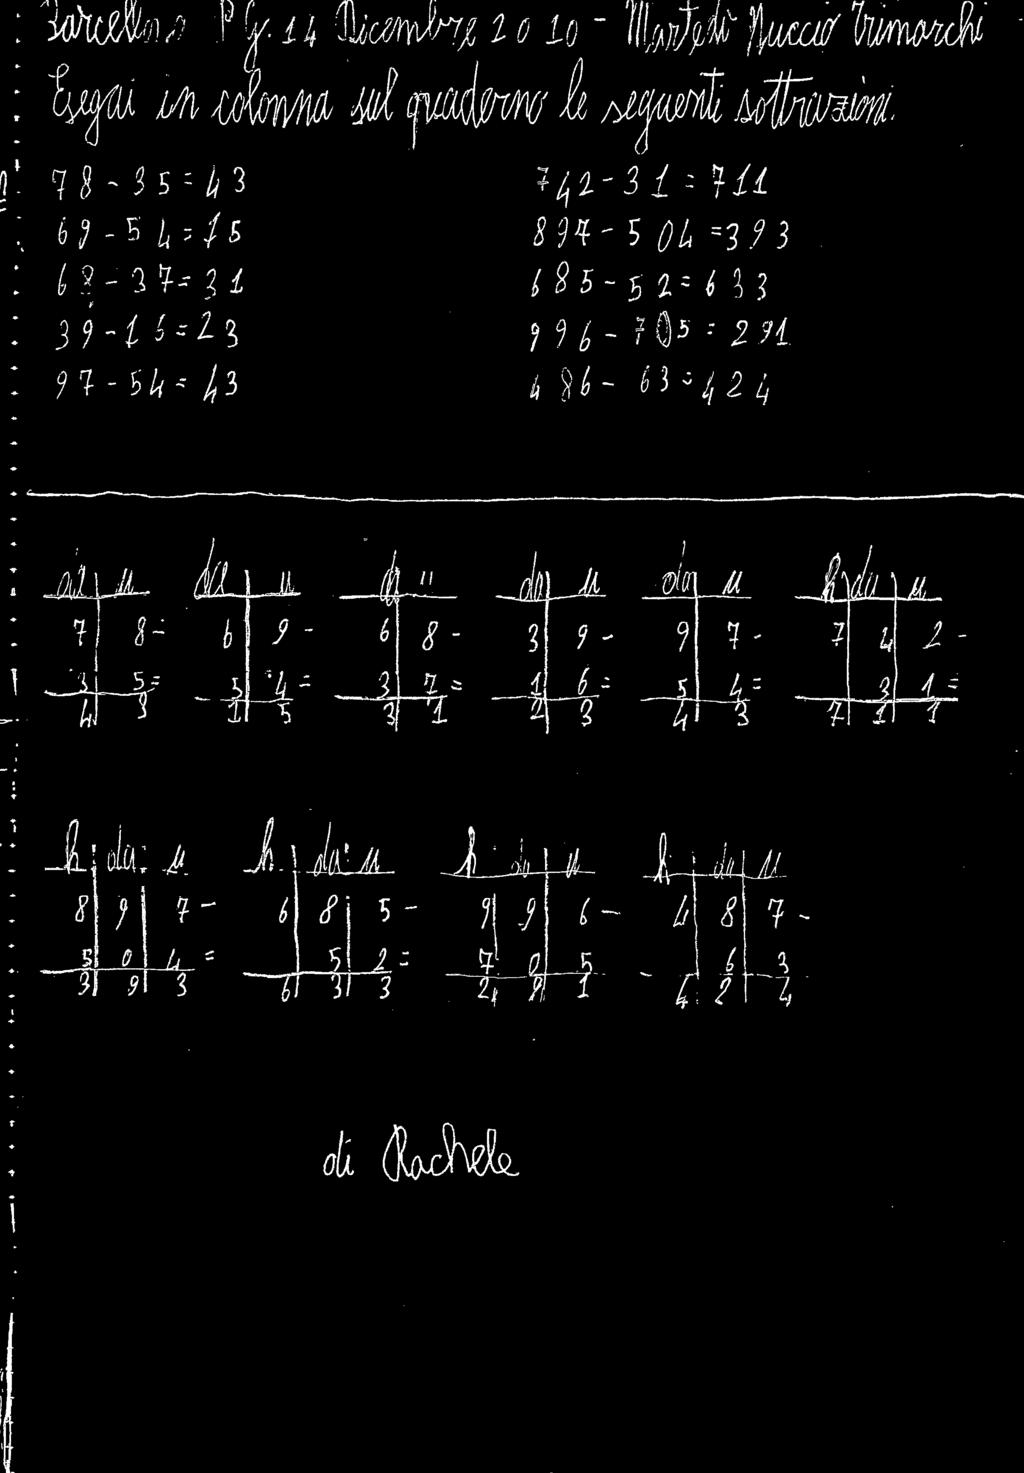 Barcellona P G. 14 Dicembre 2010 - Martedì Nuccio Trimarchi
Esegui in colonna sul quaderno le seguenti sottrazioni.
78-35=43
69-54=15
68-37=31
39-16=23
97-54=43
742-31=711
897-504=393
685-52=633
996-705=291
486-63=424
da u da u da u da u da u h da u
7 8- 6 9- 6 8- 3 9- 9 7- 7 4 2-
3 5= 5 4= 3 7= 1 6= 5 4= 3 1=
4 3 1 5 3 1 2 3 4 3 7 1 1
h da u h da u h da u h da u
8 9 7- 6 8 5- 9 9 6- 4 8 7-
5 0 4= 5 2= 7 0 5 6 3
3 9 3 6 3 3 2 9 1 4 2 4
di Rachele